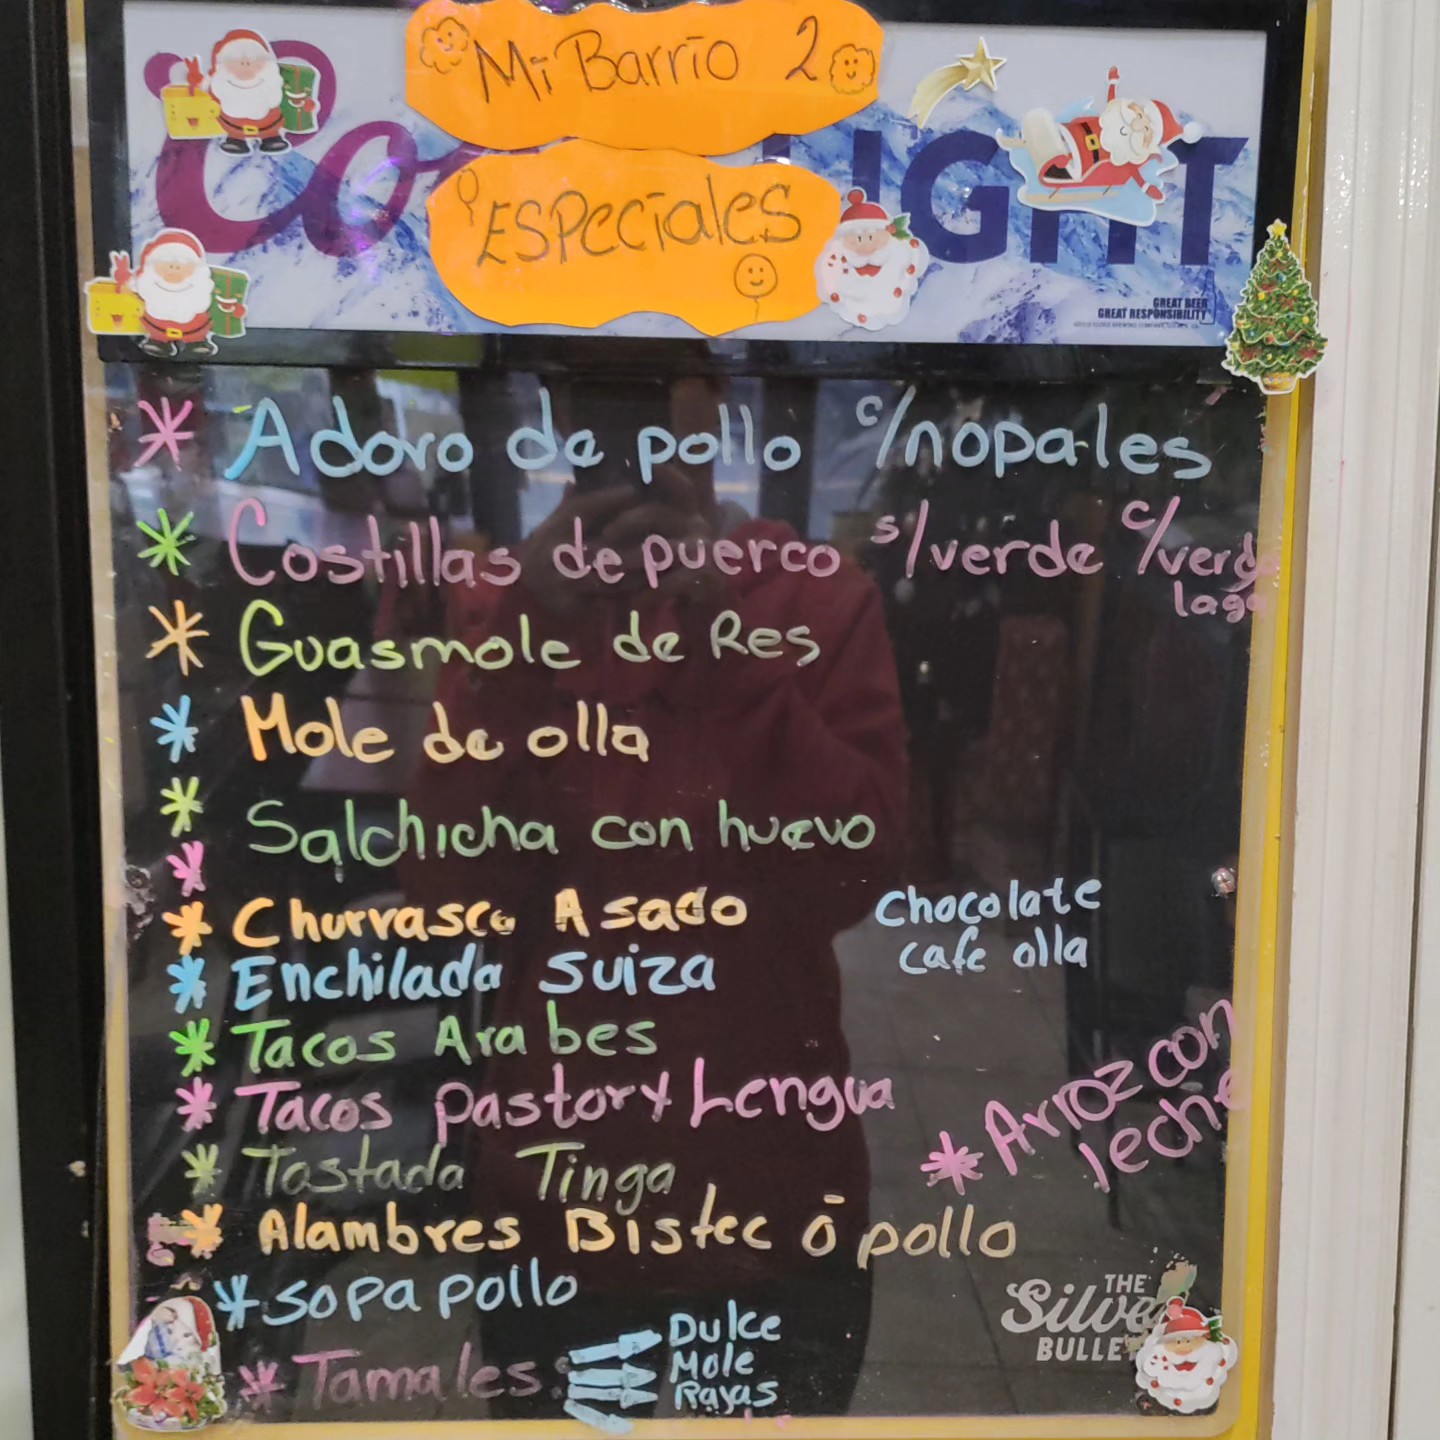 Mi Barrio 2
Especiales
LIGHT
GREAT BEER
GREAT RESPONSIBILITY
Adoro de pollo c/nopales
Costillas de puerco s/verde c/verdo
laga
Guasmole de Res
Mole de olla
Salchicha con huevo
Churrasco Asado
Chocolate
cafe olla
Enchilada Suiza
Tacos Arabes
Tacos pastor y Lengua
Arroz con
leche
Tostada Tinga
Alambres Bistec o pollo
sopa pollo
THE
Silver
BULLE
Tamales
Dulce
Mole
Rayas